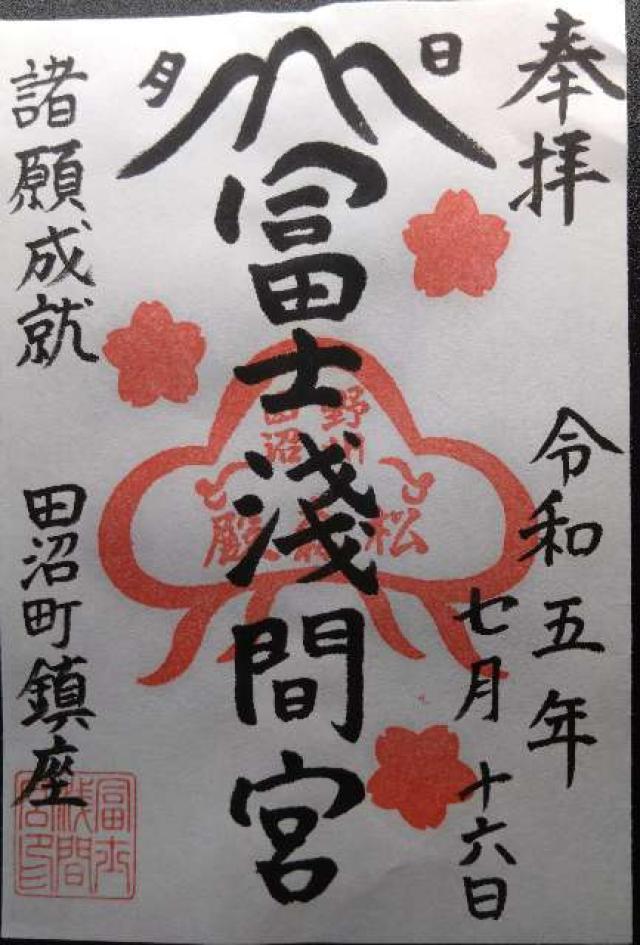 奉拝
令和五年
七月十六日
日
月
冨士浅間宮
野州
田沼
諸願成就
田沼町鎮座
冨士
浅間
宮印